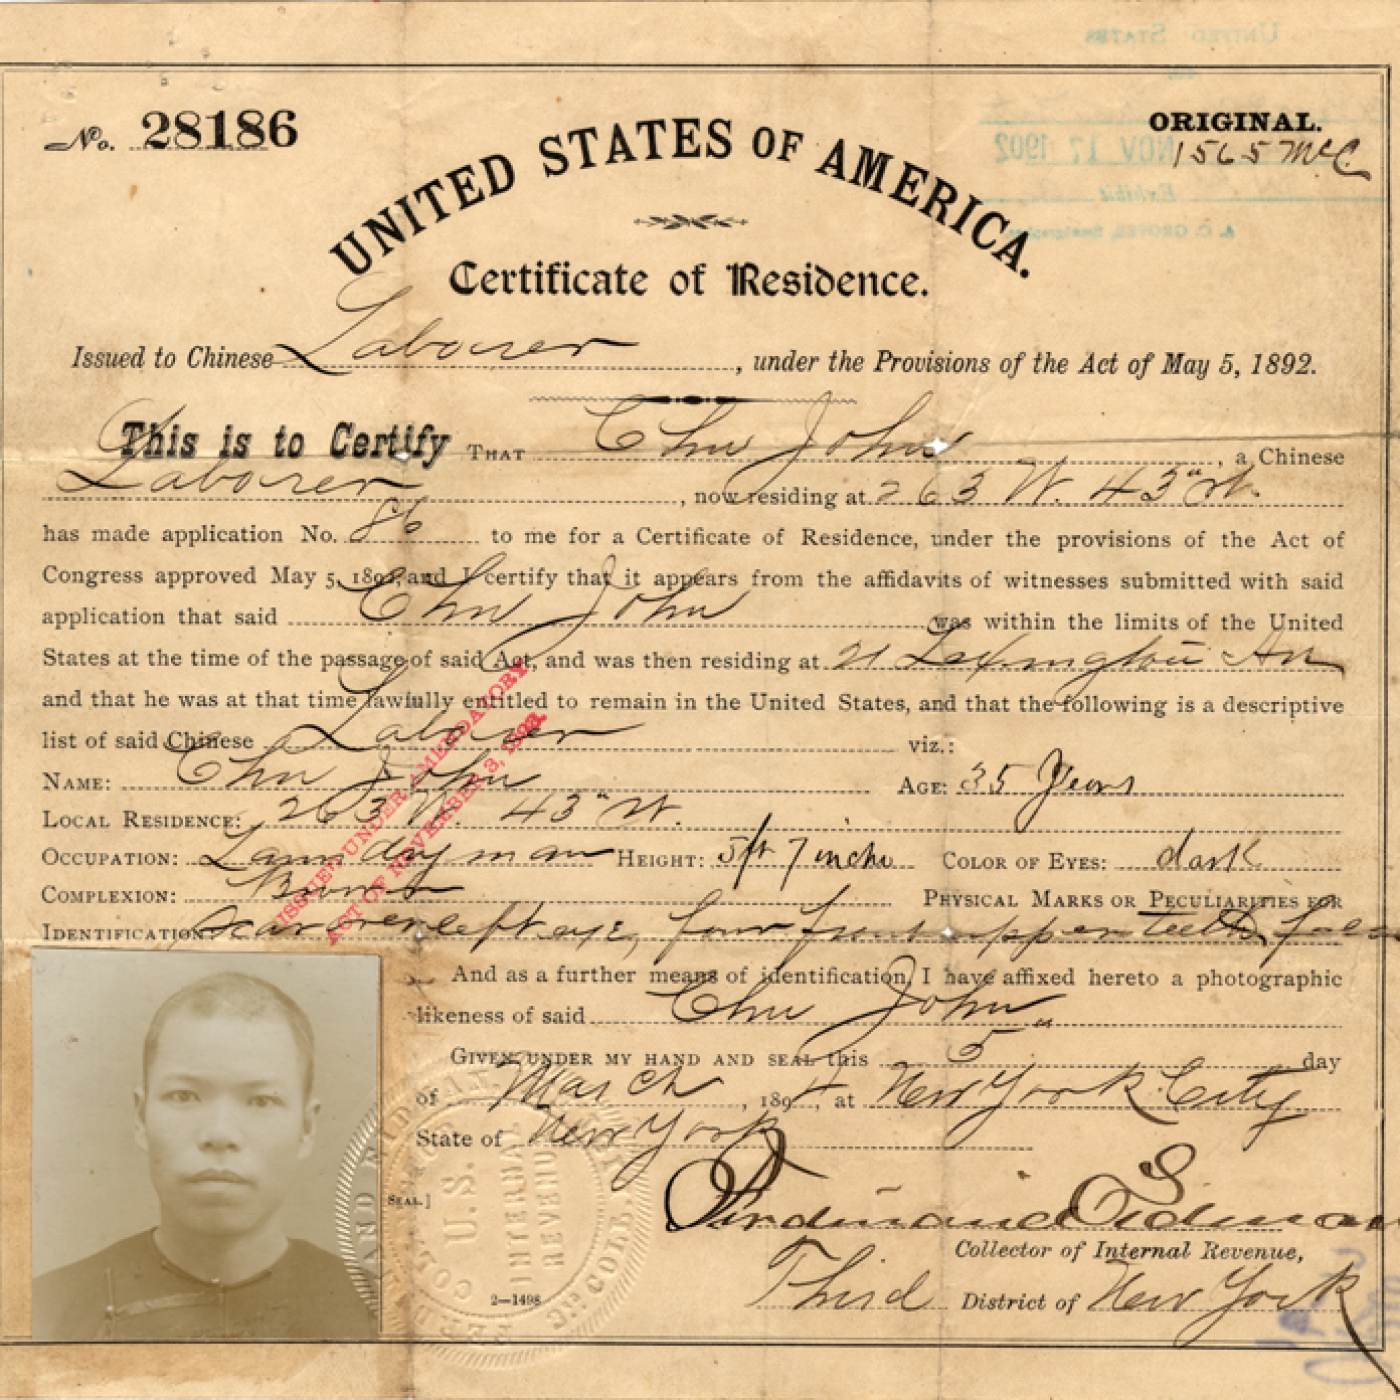 No. 28186
ORIGINAL.
1565 McC.
UNITED STATES OF AMERICA.
Certificate of Residence.
Issued to Chinese Laborer, under the Provisions of the Act of May 5, 1892.
This is to Certify THAT Chu John, a Chinese
Laborer, now residing at 263 W. 43" St.
has made application No. 86 to me for a Certificate of Residence, under the provisions of the Act of
Congress approved May 5, 1892, and I certify that it appears from the affidavits of witnesses submitted with said
application that said Chu John was within the limits of the United
States at the time of the passage of said Act, and was then residing at 21 Lexington Av
and that he was at that time lawfully entitled to remain in the United States, and that the following is a descriptive
list of said Chinese Laborer viz.:
NAME: Chu John AGE: 35 Years
LOCAL RESIDENCE: 263 W. 43" St.
OCCUPATION: Laundryman HEIGHT: 5 ft 7 inches COLOR OF EYES: dark
COMPLEXION: Brown PHYSICAL MARKS OR PECULIARITIES FOR
IDENTIFICATION: scar over left eye, four front upper teeth false
ISSUED UNDER AMENDATORY
ACT OF NOVEMBER 3, 1893.
And as a further means of identification, I have affixed hereto a photographic
likeness of said Chu John
GIVEN UNDER MY HAND AND SEAL this 5" day
of March, 1894, at New York City
State of New York
SEAL.]
U.S. INTERNAL REVENUE
Ferdinand Eidman
Collector of Internal Revenue,
Third District of New York
2—1498
UNITED STATES
NOV 17 1902
Exhibit